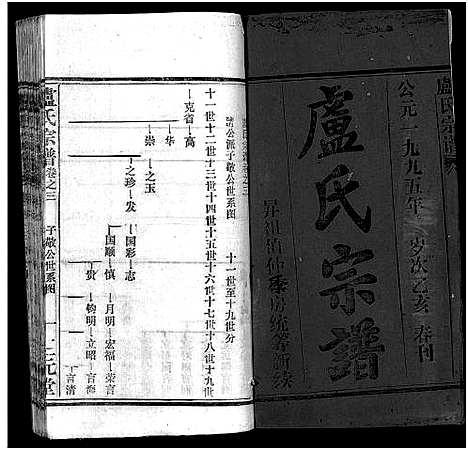 盧氏宗譜
公元一九九五年 岁次乙亥 春刊
盧氏宗譜
清公派子敬公世系图 十一世至十九世分
十一世十二世十三世十四世十五世十六世十七世十八世十九世
克省—高
华
崇—之玉
之珍—发
国彩—志
国顺—慎—月明—宏福—荣言
贵—钧明—立昭—言海
言清
盧氏宗譜卷之三 子敬公世系图 一